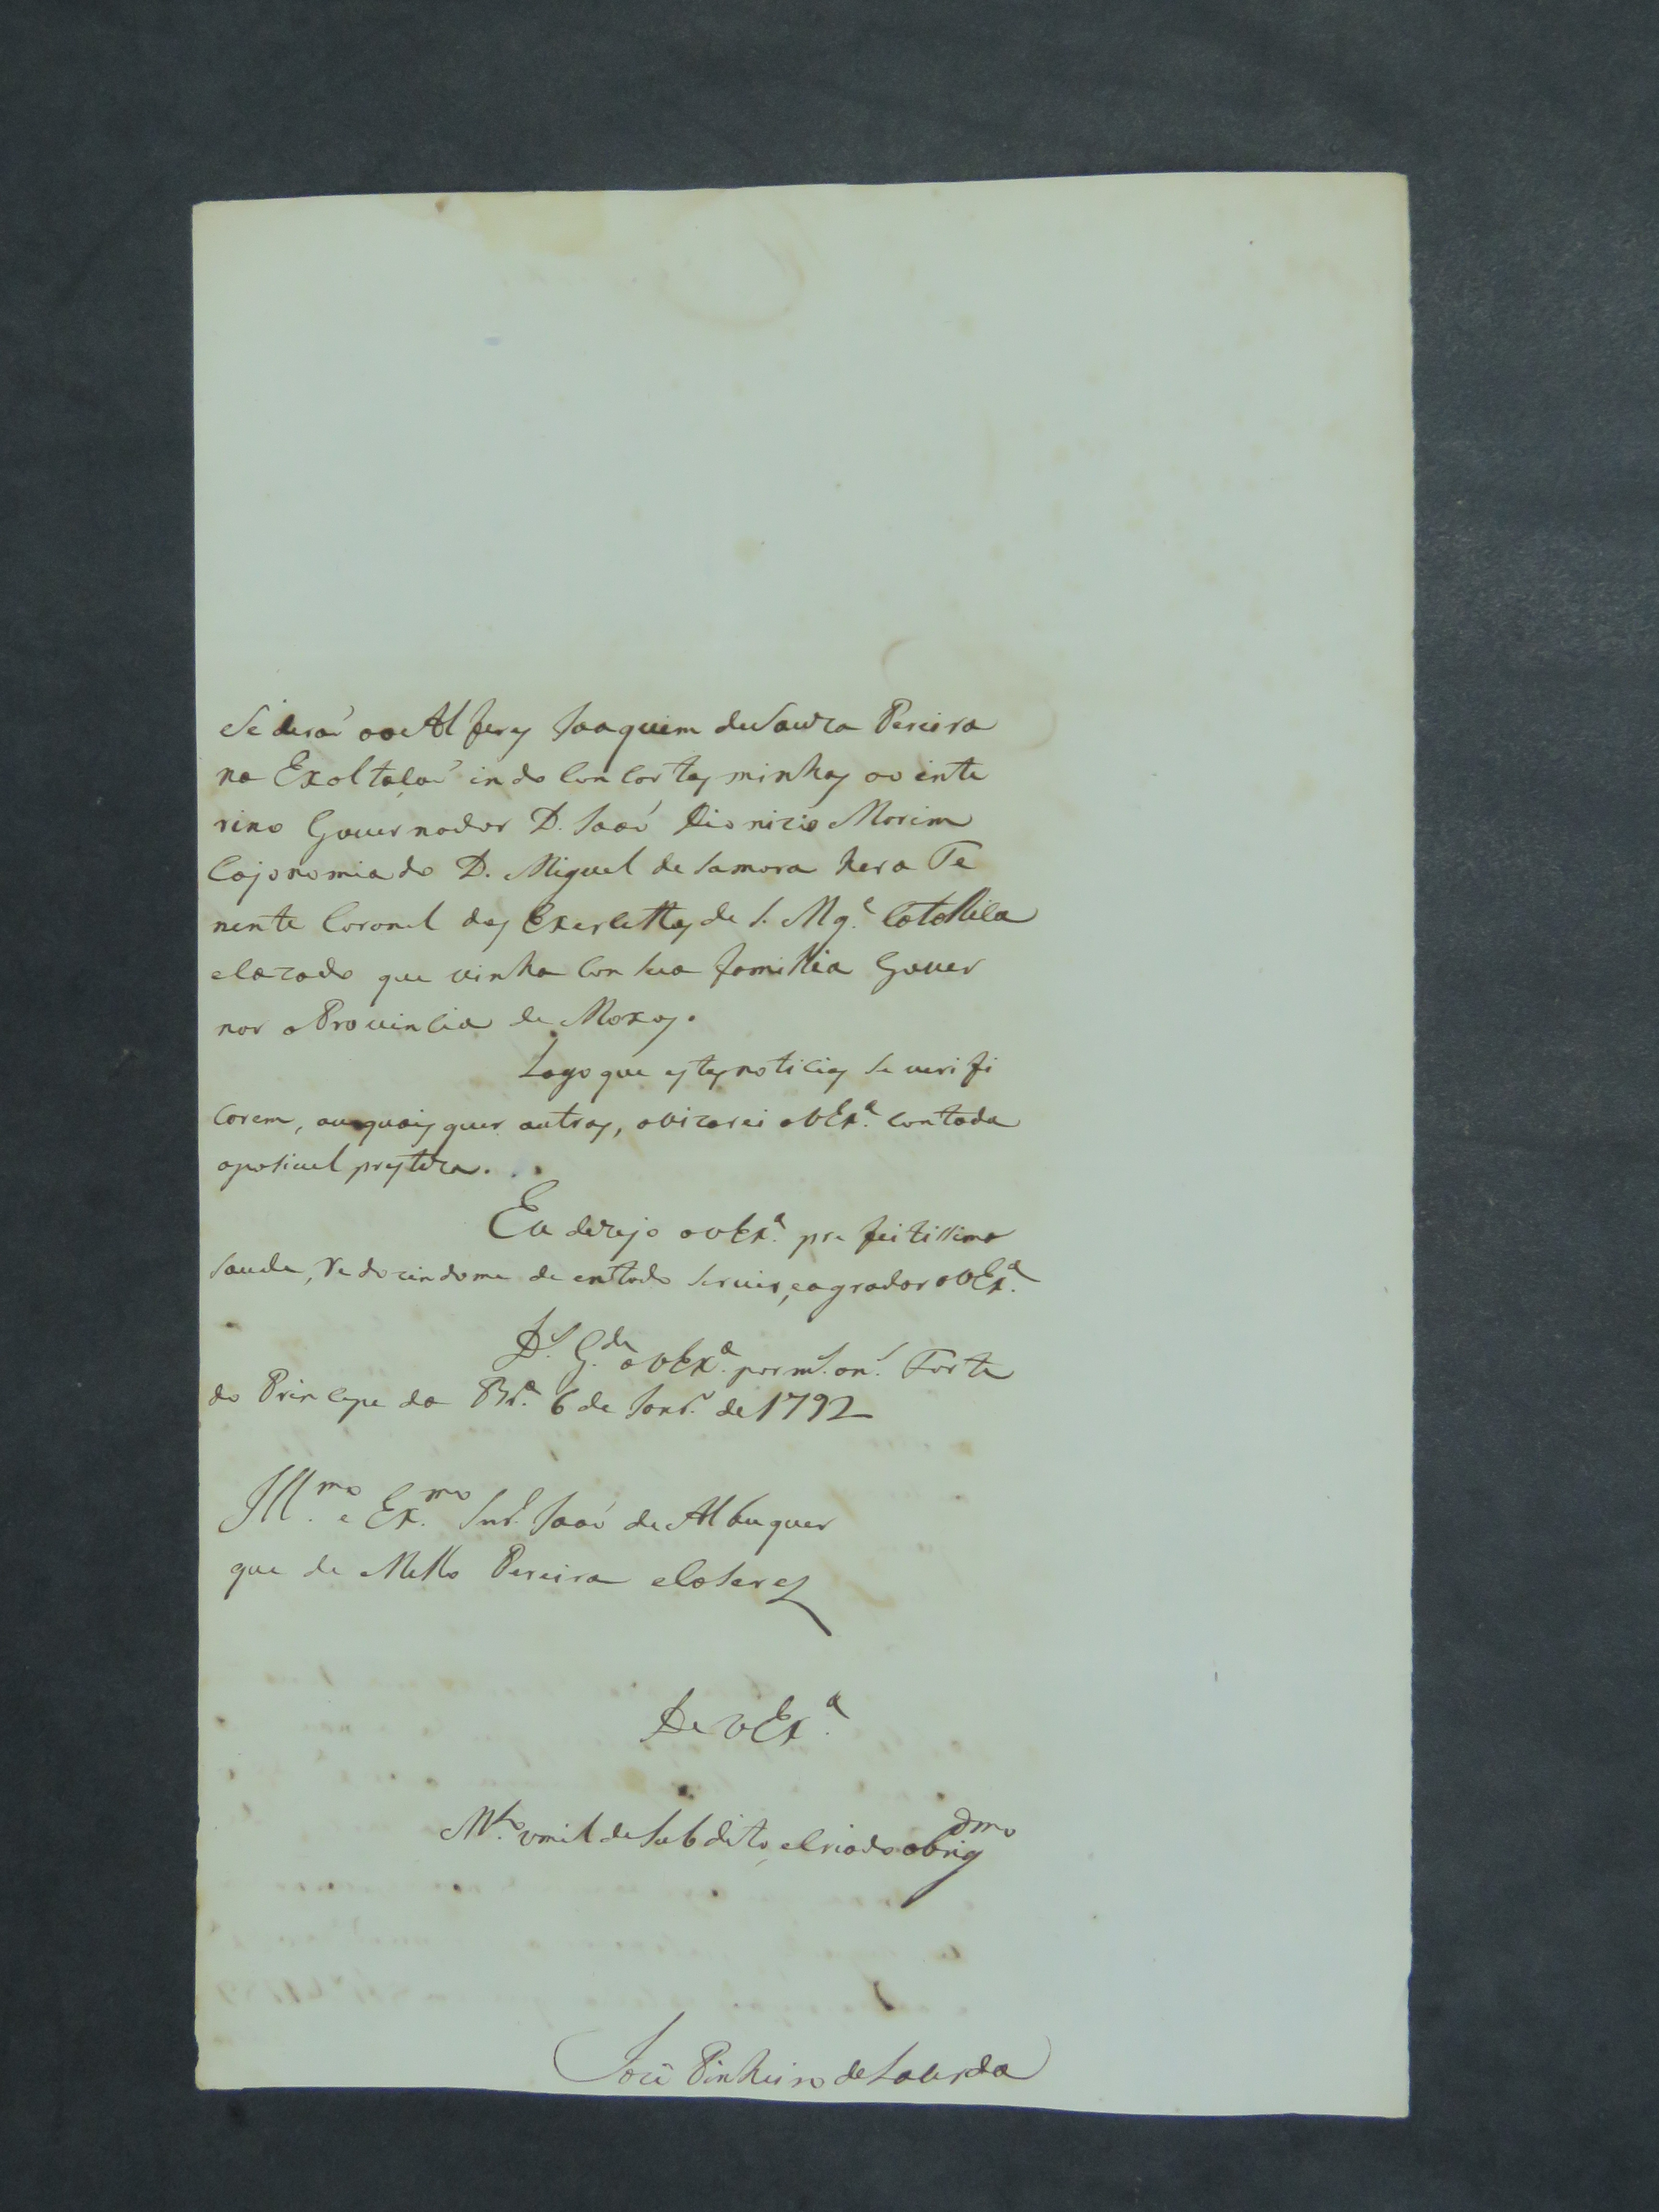 Se deraõ ao Alferes Joaquim de Souza Pereira
na Exaltaçaõ indo con cartas minhas ao inte
rino Governador D. Joaõ Dionizio Marim
Cazo nomiado D. Miguel de Samora hera Te
nente Coronel das Exercittos de S. Mg.e Catollica
e cazado que vinha con sua familia Gover
nar a Provincia de Moxos.
Logo que estas noticias se verifi
carem, ou quais quer outras, avizarei a VEx.a con toda
a posivel presteza.
Eu dezejo a VEx.a prefeitissima
saude, e dar de em todo servir, e agradar a VEx.a
D.s G.de a VEx.a por m.s an.s Forte
do Principe da Br.a 6 de Janr.o de 1792
Ill.mo e Ex.mo Snr. Joaõ de Albuquer
que de Mello Pereira e Caseres
De VEx.a
M.to umilde Subdito, e Criado obrig.dmo
Joze Pinheiro de Lacerda